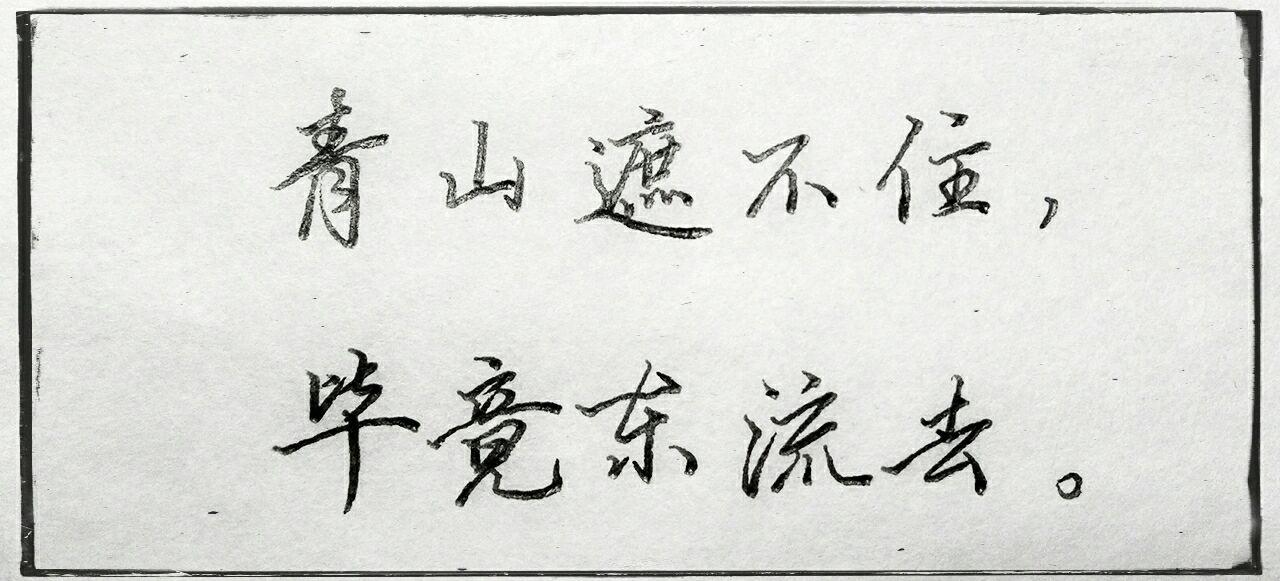 青山遮不住，
毕竟东流去。